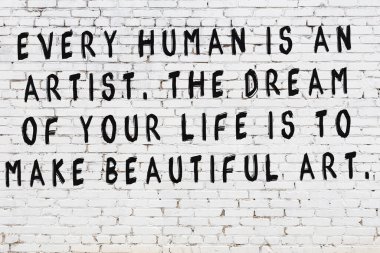 EVERY HUMAN IS AN
ARTIST. THE DREAM
OF YOUR LIFE IS TO
MAKE BEAUTIFUL ART.